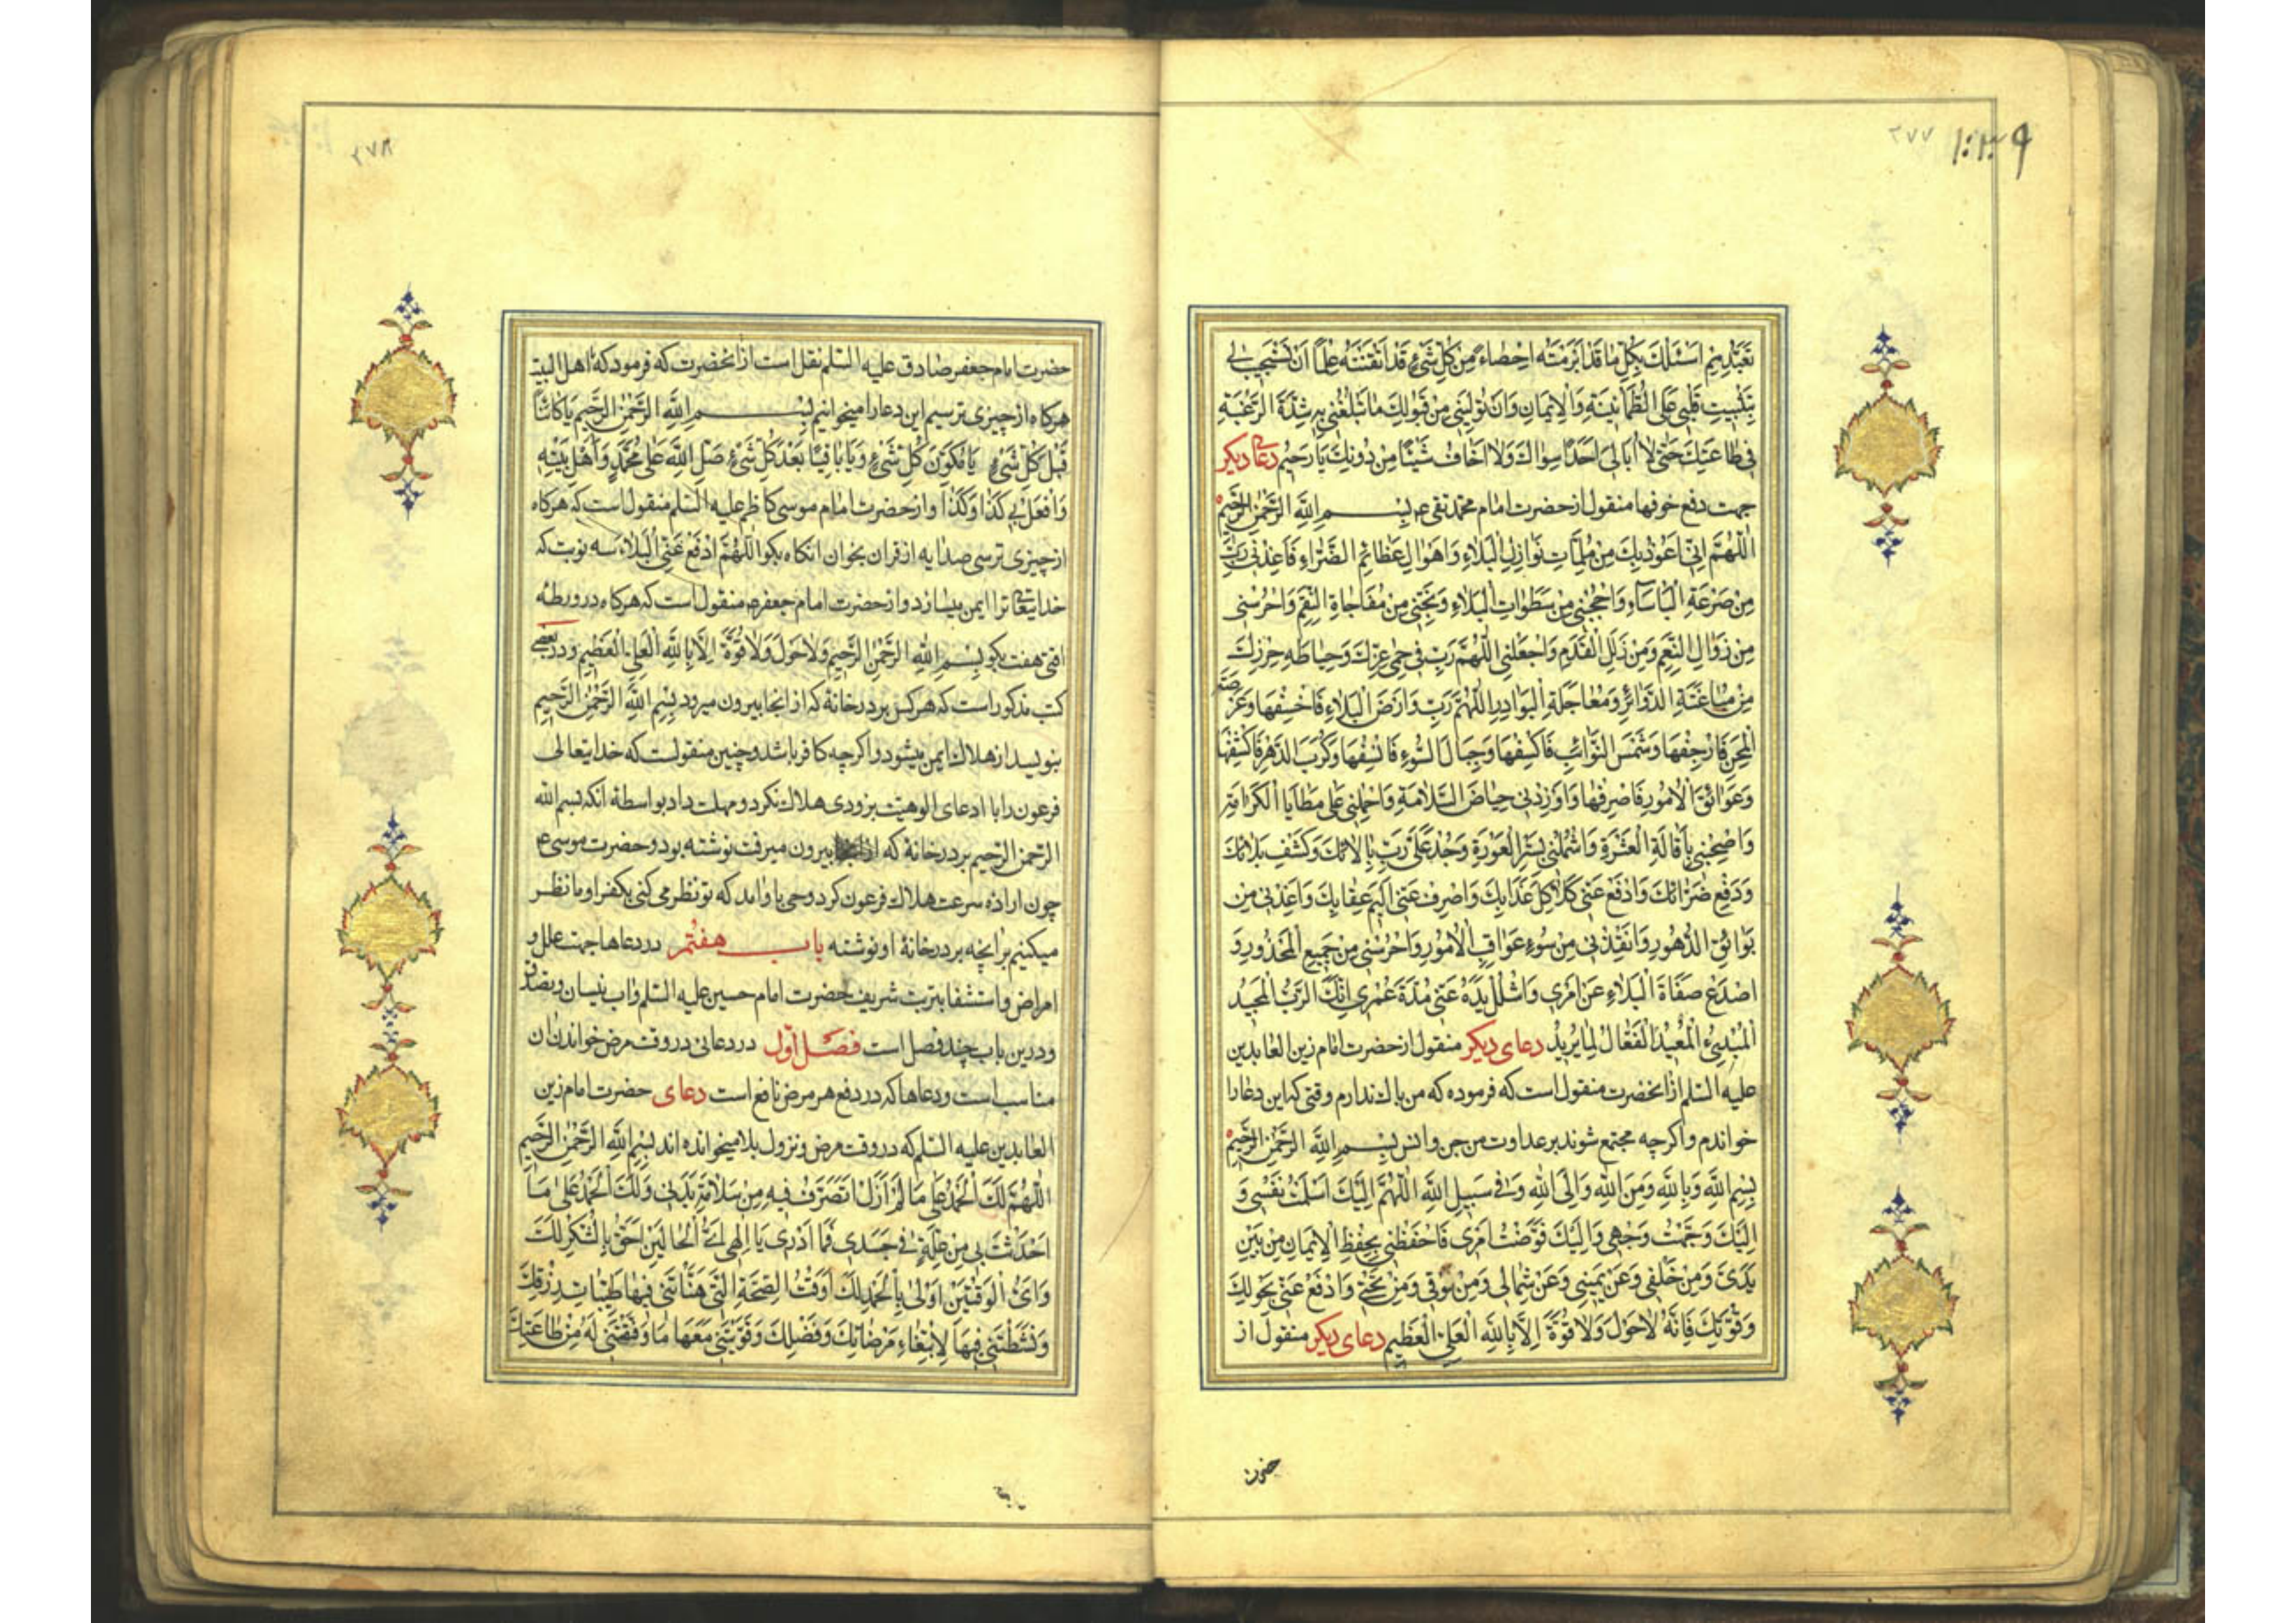 ۲۷۷ ۱۰۳۹
تعبّدهم اسئلك بكل ما قد ابرمته احصاء من كل شئ قد اتقنته علما ان تستجيب لى
بتثبيت قلبى على الطمانينة والايمان وان توليني من قبولك ما تبلغني به شدة الرغبة
فى طاعتك حتى لا ابالى احدا سواك ولا اخاف شيئا من دونك يا رحيم دعاى ديكر
جهت دفع خوفها منقول از حضرت امام محمد تقى ع بسم الله الرحمن الرحيم
اللّٰهُمَّ اِنّى اَعوذ بك من ملمّات نوازل البلاء واهوال عظائم الضراء فاعذنى رب
من صرعة الباساء واحجبنى من سطوات البلاء ونجنى من مفاجاة النقم واحرسنى
من زوال النعم ومن زلل القدم واجعلنى اللهم رب فى حمى عزك وحياطه حرزك
من مباغتة الدوائر ومعاجلة البوادر اللهم رب وارض البلاء فاخسفها وعرصة
المحن فارجفها وشمس النوائب فاكسفها وجبال السوء فانسفها وكرب الدهر فاكشفها
وعوائق الامور فاصرفها واوردنى حياض السلامة واحملنى على مطايا الكرامة
واصحبنى باقالة العثرة واشملنى بستر العورة وجد على رب بالائك وكشف بلائك
ودفع ضرائك وادفع عنى كلاكل عذابك واصرف عنى اليم عقابك واعذنى من
بوائق الدهور وانقذنى من سوء عواقب الامور واحرسنى من جميع المحذور و
اصدع صفاة البلاء عن امرى واشلل يده عنى مدة عمرى انك الرب المجيد
المبدئ المعيد الفعال لما يريد دعاى ديكر منقول از حضرت امام زين العابدين
عليه السلم از انحضرت منقول است كه فرموده كه من باك ندارم وقتى كه اين دعا را
خواندم واكرچه مجتمع شوند بر عداوت من جن وانس بسم الله الرحمن الرحيم
بسم الله وبالله ومن الله والى الله وفى سبيل الله اللهم اليك اسلمت نفسى و
اليك وجهت وجهى واليك فوضت امرى فاحفظنى بحفظ الايمان من بين
يدى ومن خلفى وعن يمينى وعن شمالى ومن فوقى ومن تحتى وادفع عنى بحولك
وقوتك فانه لا حول ولا قوة الا بالله العلى العظيم دعاى ديكر منقول از
۲۷۸
حضرت امام جعفر صادق عليه السلم نقل است از انحضرت كه فرمود كه ما اهل البيت
هركاه از چيزى ترسيم اين دعا را ميخوانيم بسم الله الرحمن الرحيم يا كائنا
قبل كل شئ يا مكون كل شئ ويا باقيا بعد كل شئ صل الله على محمد واهل بيته
وافعل بى كذا وكذا واز حضرت امام موسى كاظم عليه السلم منقول است كه هركاه
از چيزى ترسى صد ايه از قران بخوان انكاه بكو اللهم ادفع عنى البلاء سه نوبت كه
خدايتعالى ترا ايمن ميسازد واز حضرت امام جعفر ع منقول است كه هركاه در ورطه
افتى هفت بكو بسم الله الرحمن الرحيم ولا حول ولا قوة الا بالله العلى العظيم ودر بعضى
كتب مذكور است كه هركس بر در خانه كه از انجا بيرون ميرود بسم الله الرحمن الرحيم
بنويسد از هلاك ايمن ميشود واكرچه كافر باشد وچنين منقولست كه خدايتعالى
فرعون را با ادعاى الوهيت بزودى هلاك نكرد ومهلت داد بواسطه انكه بسم الله
الرحمن الرحيم بر در خانه كه از انجا بيرون ميرفت نوشته بود وحضرت موسى ع
چون اراده سرعت هلاك فرعون كرد وحى باو امد كه تو نظر مى كنى بكفر او وما نظر
ميكنيم بر انچه بر در خانهٔ او نوشته باب هفتم در دعاها جهت علل و
امراض واستشفا بتربت شريف حضرت امام حسين عليه السلم واب نيسان وتصدق
ودرين باب چند فصل است فصل اول در دعائى در وقت مرض خواندن ان
مناسب است ودعاها كه در دفع هر مرض نافع است دعاى حضرت امام زين
العابدين عليه السلم كه در وقت مرض ونزول بلا ميخوانده اند بسم الله الرحمن الرحيم
اللهم لك الحمد على ما لم ازل اتصرف فيه من سلامة بدنى ولك الحمد على ما
احدثت بى من علة فى جسدى فما ادرى يا الهى اى الحالين احق بالشكر لك
واى الوقتين اولى بالحمد لك اوقت الصحة التى هناتنى فيها طيبات رزقك
ونشطتنى فيها لابتغاء مرضاتك وفضلك وقويتنى معها ما وفقتنى له من طاعتك